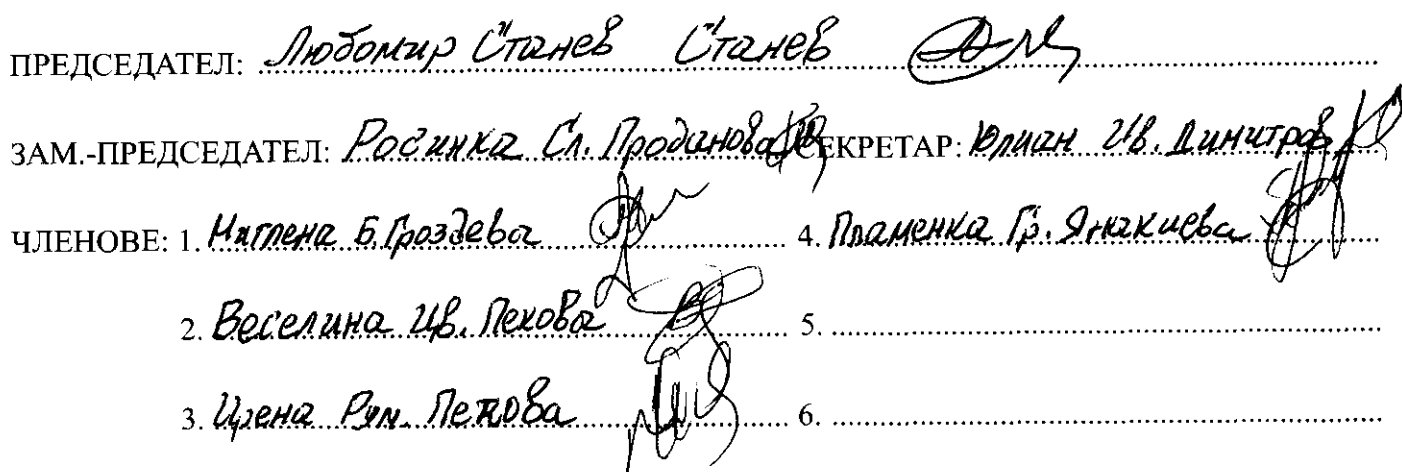 ПРЕДСЕДАТЕЛ: Любомир Станев Станев
ЗАМ.-ПРЕДСЕДАТЕЛ: Росинка Сл. Проданова СЕКРЕТАР: Юлиан Ив. Димитров
ЧЛЕНОВЕ: 1. Миглена Б. Гроздева 4. Пламенка Гр. Янакиева
2. Веселина Цв. Пехова 5.
3. Цвена Рум. Петкова 6.